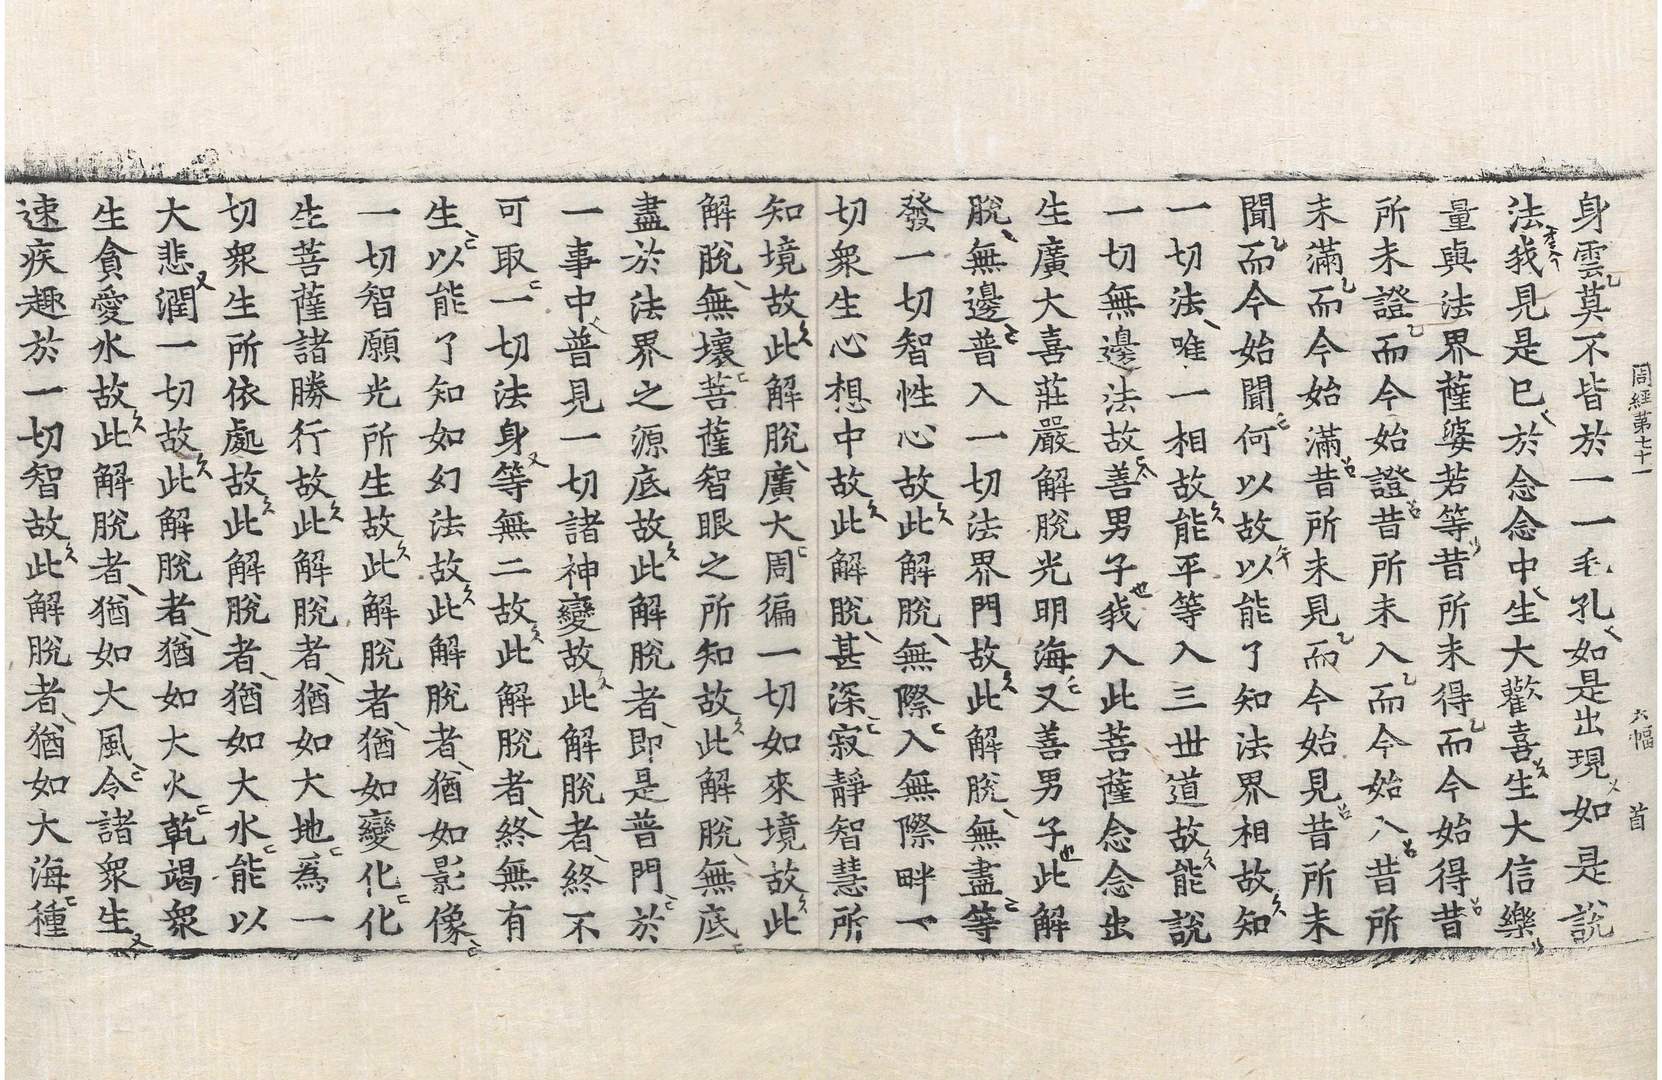 周經第七十一　六幅　首
身雲莫不皆於一一毛孔如是出現如是說
法我見是已於念念中生大歡喜生大信樂
量與法界薩婆若等昔所未得而今始得昔
所未證而今始證昔所未入而今始入昔所
未滿而今始滿昔所未見而今始見昔所未
聞而今始聞何以故以能了知法界相故知
一切法唯一相故能平等入三世道故能說
一切無邊法故善男子我入此菩薩念念出
生廣大喜莊嚴解脫光明海又善男子此解
脫無邊普入一切法界門故此解脫無盡等
發一切智性心故此解脫無際入無際畔一
切衆生心想中故此解脫甚深寂靜智慧所
知境故此解脫廣大周徧一切如來境故此
解脫無壞菩薩智眼之所知故此解脫無底
盡於法界之源底故此解脫者即是普門於
一事中普見一切諸神變故此解脫者終不
可取一切法身等無二故此解脫者終無有
生以能了知如幻法故此解脫者猶如影像
一切智願光所生故此解脫者猶如變化化
生菩薩諸勝行故此解脫者猶如大地爲一
切衆生所依處故此解脫者猶如大水能以
大悲潤一切故此解脫者猶如大火乾竭衆
生貪愛水故此解脫者猶如大風令諸衆生
速疾趣於一切智故此解脫者猶如大海種